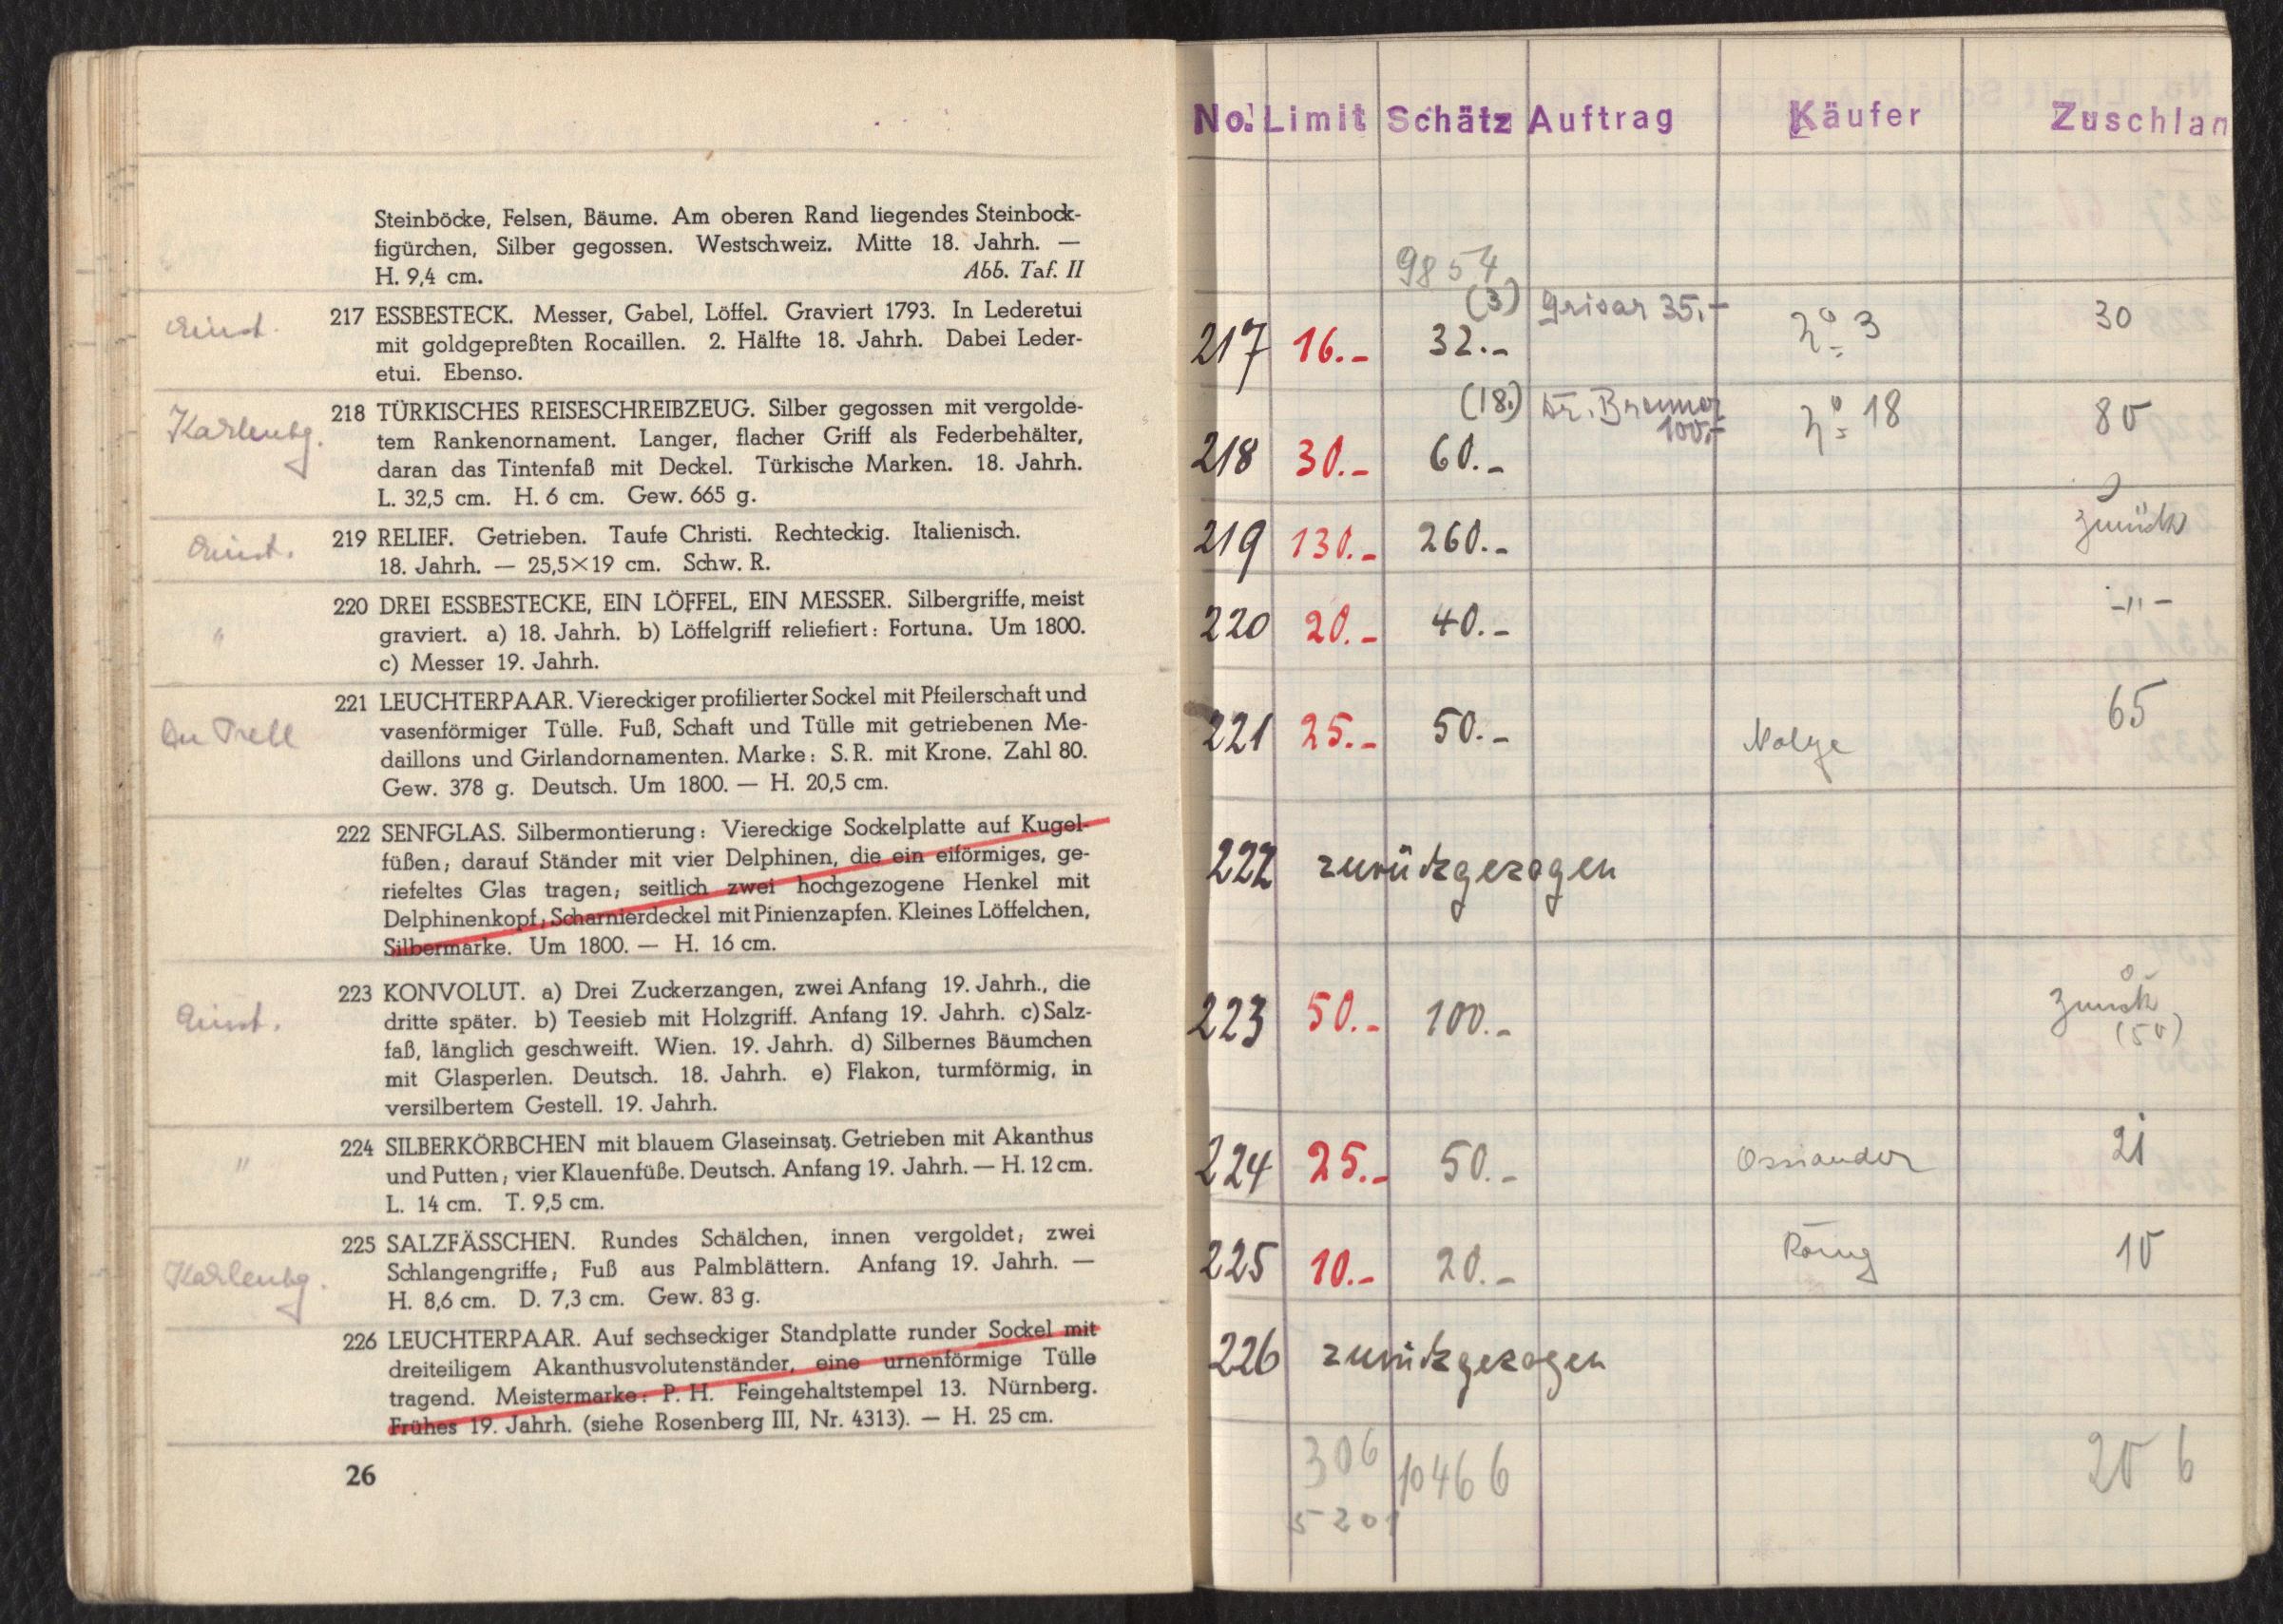 Steinböcke, Felsen, Bäume. Am oberen Rand liegendes Steinbock-
figürchen, Silber gegossen. Westschweiz. Mitte 18. Jahrh. —
H. 9,4 cm. Abb. Taf. II
217 ESSBESTECK. Messer, Gabel, Löffel. Graviert 1793. In Lederetui
mit goldgepreßten Rocaillen. 2. Hälfte 18. Jahrh. Dabei Leder-
etui. Ebenso.
Karlenbg.
218 TÜRKISCHES REISESCHREIBZEUG. Silber gegossen mit vergolde-
tem Rankenornament. Langer, flacher Griff als Federbehälter,
daran das Tintenfaß mit Deckel. Türkische Marken. 18. Jahrh.
L. 32,5 cm. H. 6 cm. Gew. 665 g.
219 RELIEF. Getrieben. Taufe Christi. Rechteckig. Italienisch.
18. Jahrh. — 25,5×19 cm. Schw. R.
"
220 DREI ESSBESTECKE, EIN LÖFFEL, EIN MESSER. Silbergriffe, meist
graviert. a) 18. Jahrh. b) Löffelgriff reliefiert: Fortuna. Um 1800.
c) Messer 19. Jahrh.
221 LEUCHTERPAAR. Viereckiger profilierter Sockel mit Pfeilerschaft und
vasenförmiger Tülle. Fuß, Schaft und Tülle mit getriebenen Me-
daillons und Girlandornamenten. Marke: S. R. mit Krone. Zahl 80.
Gew. 378 g. Deutsch. Um 1800. — H. 20,5 cm.
222 SENFGLAS. Silbermontierung: Viereckige Sockelplatte auf Kugel-
füßen; darauf Ständer mit vier Delphinen, die ein eiförmiges, ge-
riefeltes Glas tragen; seitlich zwei hochgezogene Henkel mit
Delphinenkopf; Scharnierdeckel mit Pinienzapfen. Kleines Löffelchen,
Silbermarke. Um 1800. — H. 16 cm.
223 KONVOLUT. a) Drei Zuckerzangen, zwei Anfang 19. Jahrh., die
dritte später. b) Teesieb mit Holzgriff. Anfang 19. Jahrh. c) Salz-
faß, länglich geschweift. Wien. 19. Jahrh. d) Silbernes Bäumchen
mit Glasperlen. Deutsch. 18. Jahrh. e) Flakon, turmförmig, in
versilbertem Gestell. 19. Jahrh.
"
224 SILBERKÖRBCHEN mit blauem Glaseinsatz. Getrieben mit Akanthus
und Putten; vier Klauenfüße. Deutsch. Anfang 19. Jahrh. — H. 12 cm.
L. 14 cm. T. 9,5 cm.
Karlenbg.
225 SALZFÄSSCHEN. Rundes Schälchen, innen vergoldet; zwei
Schlangengriffe; Fuß aus Palmblättern. Anfang 19. Jahrh. —
H. 8,6 cm. D. 7,3 cm. Gew. 83 g.
226 LEUCHTERPAAR. Auf sechseckiger Standplatte runder Sockel mit
dreiteiligem Akanthusvolutenständer, eine urnenförmige Tülle
tragend. Meistermarke: P. H. Feingehaltstempel 13. Nürnberg.
Frühes 19. Jahrh. (siehe Rosenberg III, Nr. 4313). — H. 25 cm.
26
No. Limit Schätz Auftrag Käufer Zuschlan
9854
(3) Grisar 35.-
217 16.- 32.- No 3 30
(18.) Dr. Brenner 100.-
218 30.- 60.- No 18 80
219 130.- 260.- zurück
220 20.- 40.- -"-
221 25.- 50.- 65
222 zurückgezogen
223 50.- 100.- zurück
(50)
224 25.- 50.- Ossiander 21
225 10.- 20.- 10
226 zurückgezogen
306 10466 206
5201